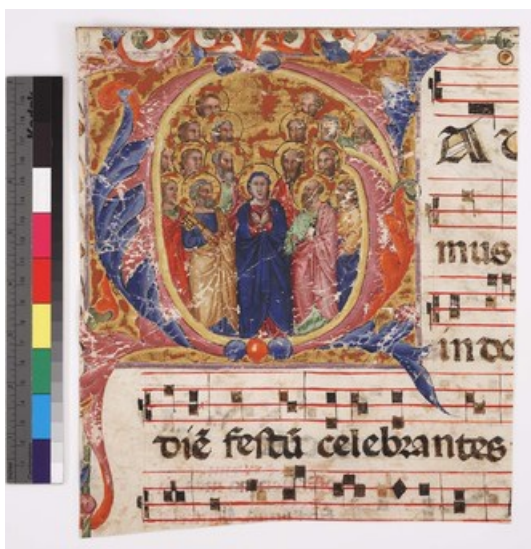 GAu
mus
in do
diē festū celebrantes